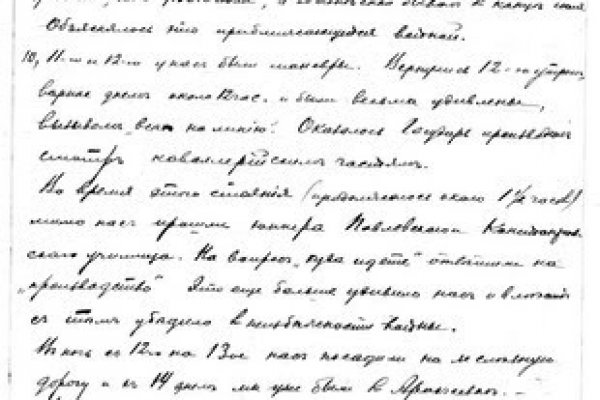 Объяснялось это приближающейся войной.
10, 11-го и 12-го у нас были маневры. Вернулись 12-го утром,
вернее днем около 12 час. и были весьма удивлены,
вызовом "всех на линию". Оказалось Государь производил
смотр кавалерийским частям.
Во время этого стояния (продолжалось около 1½ часов)
мимо нас прошли юнкера Павловского
ского училища. На вопрос "куда идете" ответили на
"производство" Это еще больше удивило нас и
с тем убедило в неизбежности войны.
В ночь с 12го на 13ое нас посадили на железную
дорогу и в 14 днем мы уже были в